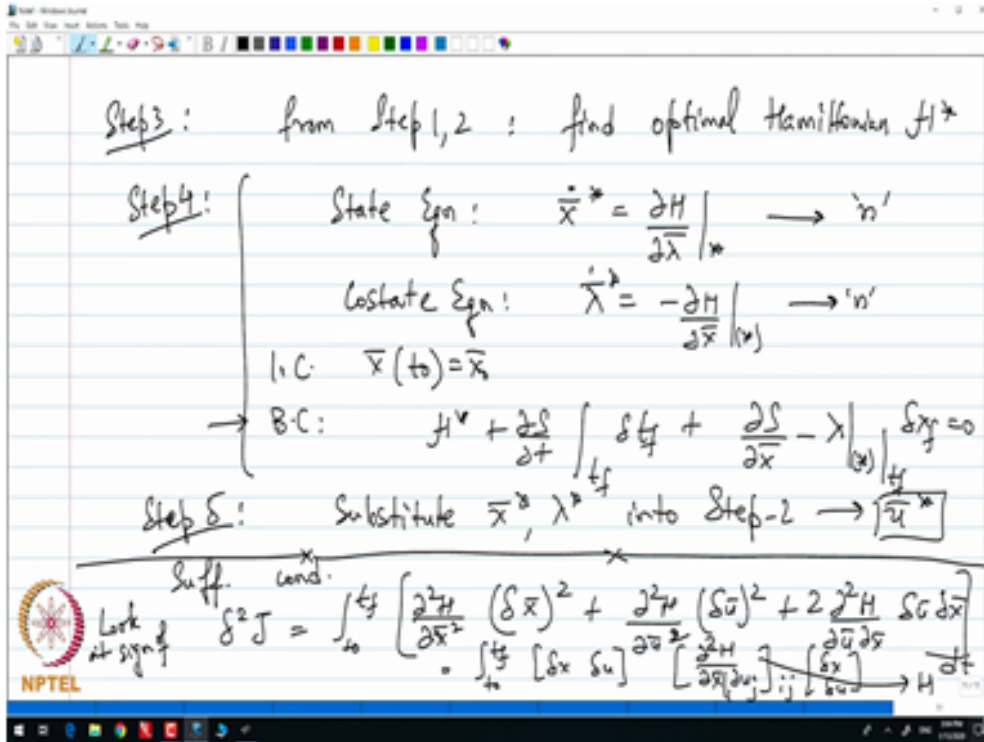 Step 3 : from Step 1, 2 : find optimal Hamiltonian H*
Step 4 : State Eqn : ẋ̄* = ∂H/∂λ̄ |* → 'n'
Costate Eqn : λ̄̇* = -∂H/∂x̄ |(*) → 'n'
I.C. x̄(t0) = x̄0
→ B.C : H* + ∂S/∂t |tf δtf + ∂S/∂x̄ - λ |(*) |tf δxf = 0
Step 5 : Substitute x̄*, λ* into Step-2 → ū*
Suff. cond.
Look at sign of δ²J = ∫t0^tf [ ∂²H/∂x̄² (δx̄)² + ∂²H/∂ū² (δū)² + 2 ∂²H/∂ū∂x̄ δū δx̄ ] dt
= ∫t0^tf [δx δu] [∂²H/∂xi∂uj]ij [δx δu] → H
NPTEL